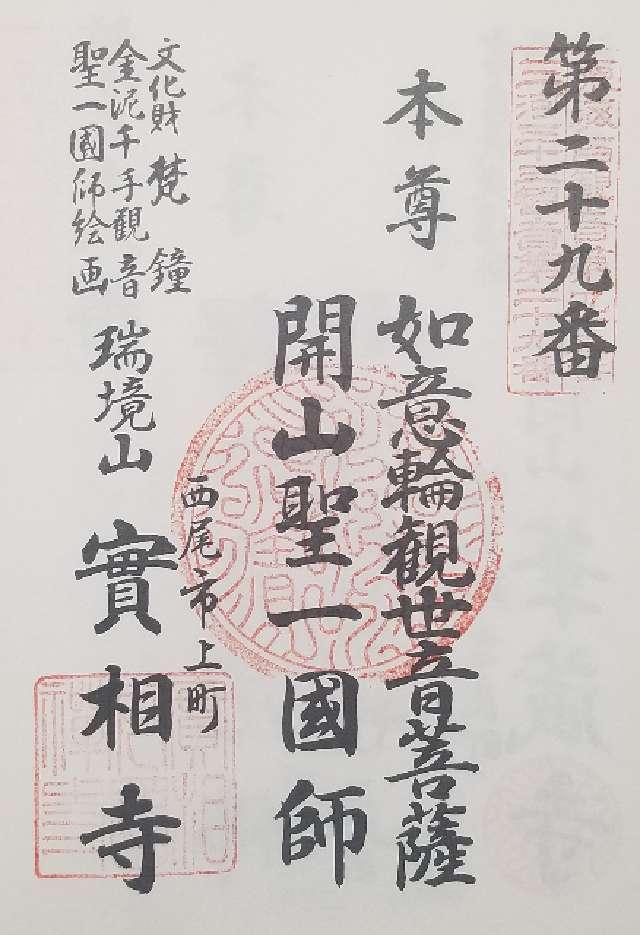 第二十九番
本尊 如意輪観世音菩薩
開山聖一國師
西尾市上町
文化財 梵鐘
金泥千手観音
聖一國師絵画
瑞境山 實相寺